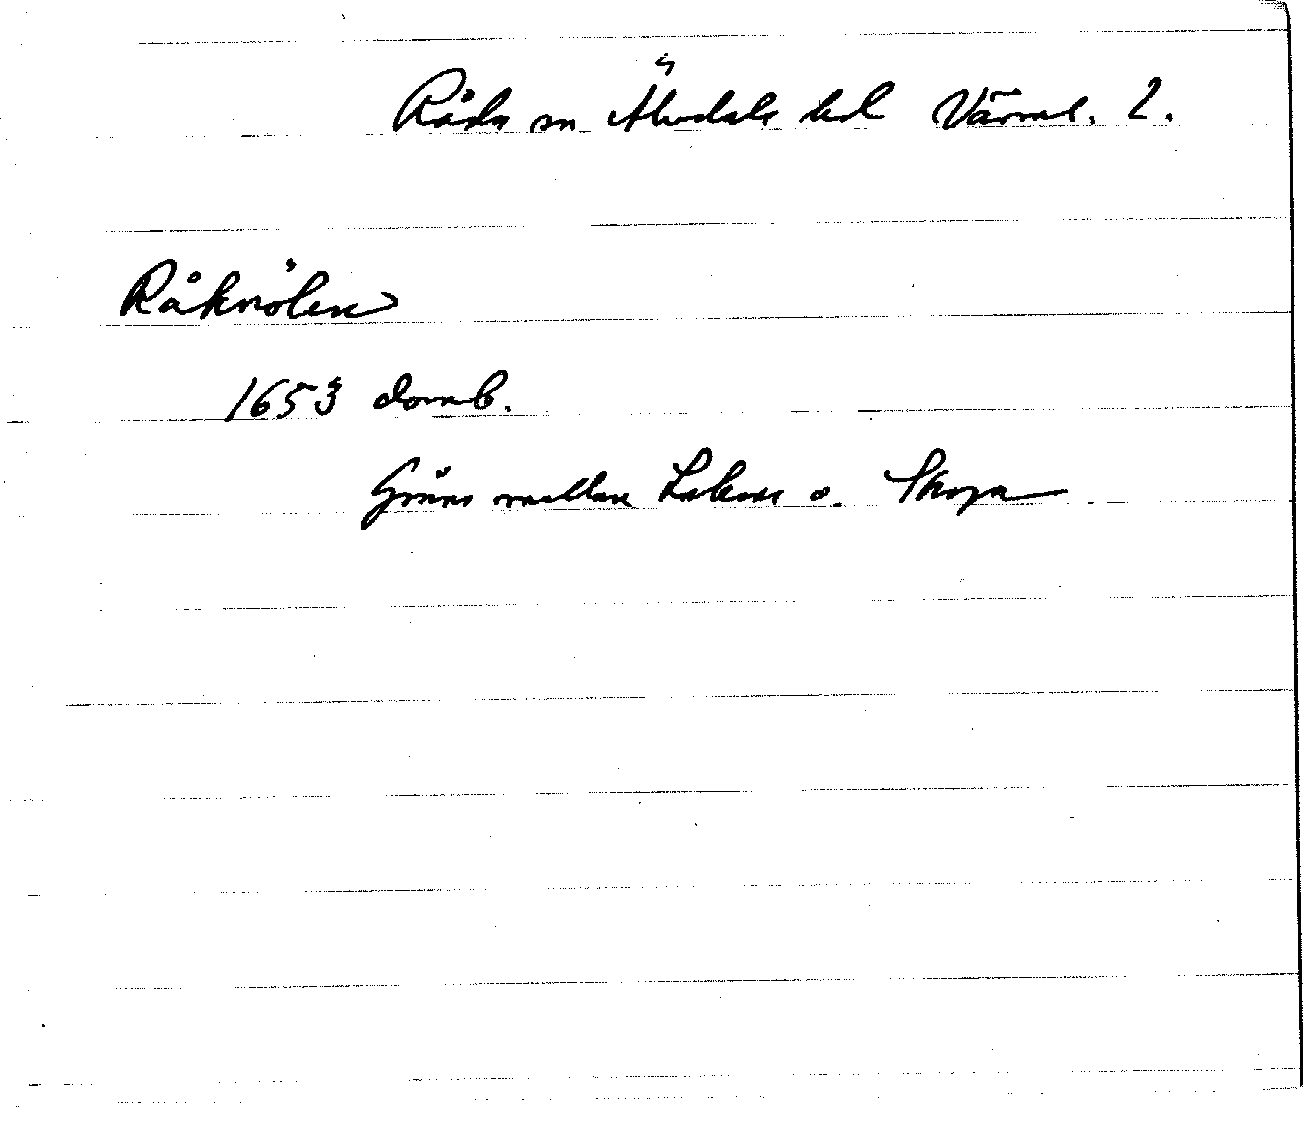 Råda sn Älvdals hd Värml. l.
Råknölen
1653 domb.
Gräns mellan Lakene o. Skoga